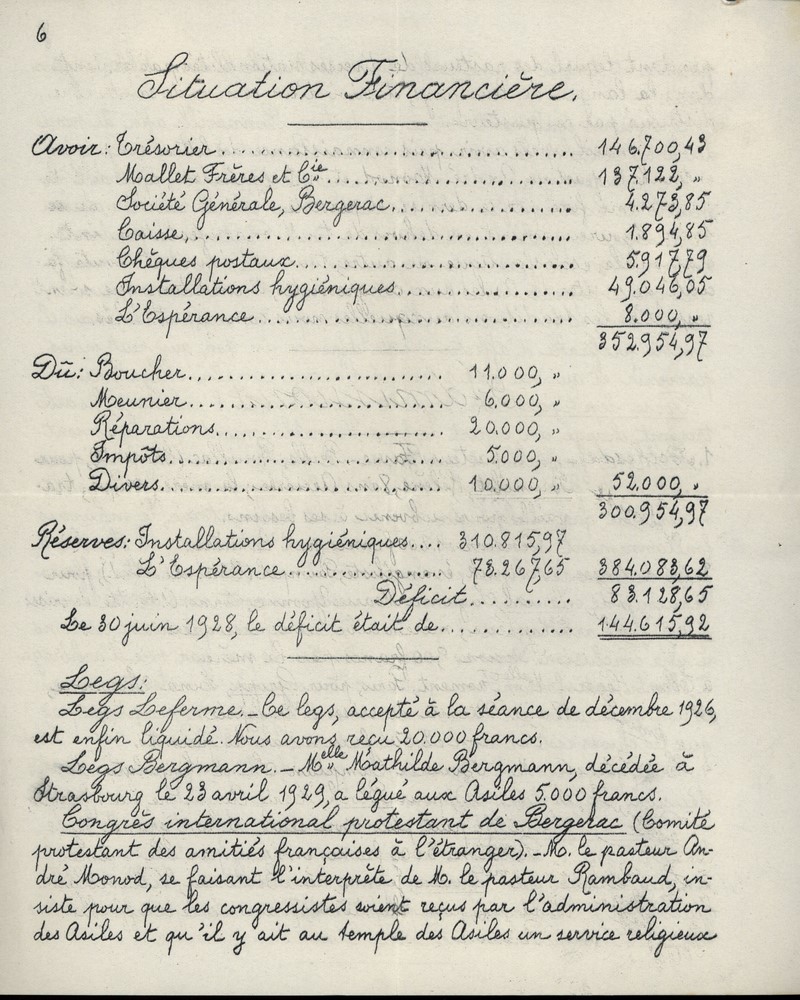 6
Situation Financière.
Avoir: Trésorier.............................. 146.700,43
Mallet Frères et Cie........................ 137.122, "
Société Générale, Bergerac.................. 4.273,85
Caisse,..................................... 1.894,85
Chèques postaux............................. 5.917,79
Installations hygiéniques................... 49.046,05
L'Espérance................................. 8.000, "
352.954,97
Dû: Boucher........................ 11.000, "
Meunier........................ 6.000, "
Réparations.................... 20.000, "
Impôts......................... 5.000, "
Divers......................... 10.000, " 52.000, "
300.954,97
Réserves: Installations hygiéniques.... 310.815,97
L'Espérance.................. 73.267,65 384.083,62
Déficit.......... 83.128,65
Le 30 juin 1928, le déficit était de............. 144.615,92
Legs:
Legs Leferme._Ce legs, accepté à la séance de décembre 1926,
est enfin liquidé. Nous avons reçu 20.000 francs.
Legs Bergmann._Melle Mathilde Bergmann, décédée à
Strasbourg le 23 avril 1929, a légué aux Asiles 5.000 francs.
Congrès international protestant de Bergerac (Comité
protestant des amitiés françaises à l'étranger)._M. le pasteur An-
dré Monod, se faisant l'interprète de M. le pasteur Rambaud, in-
siste pour que les congressistes soient reçus par l'administration
des Asiles et qu'il y ait au temple des Asiles un service religieux